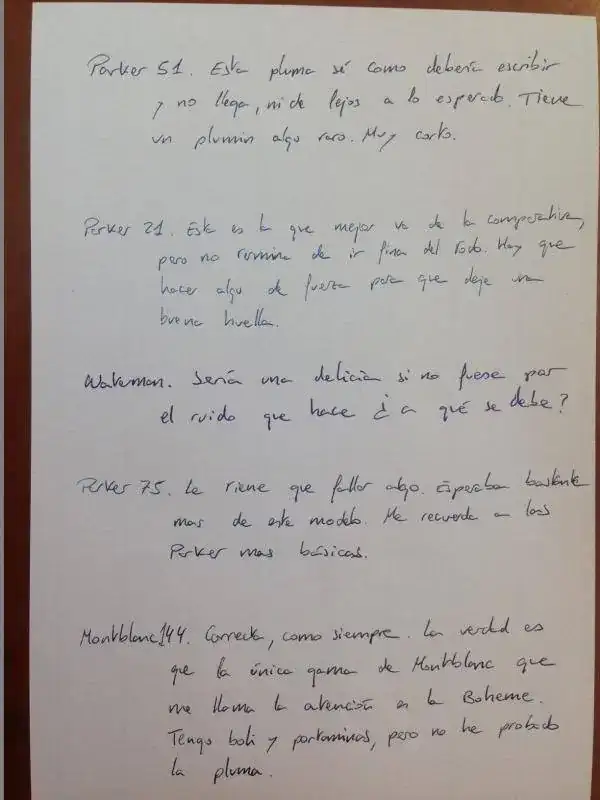 Parker 51. Esta pluma sé como debería escribir
y no llega, ni de lejos a lo esperado. Tiene
un plumín algo raro. Muy corto.
Parker 21. Este es la que mejor va de la comparativa,
pero no termina de ir fina del todo. Hay que
hacer algo de fuerza para que deje una
buena huella.
Waterman. Sería una delicia si no fuese por
el ruido que hace ¿a qué se debe?
Parker 75. Le tiene que fallar algo. Esperaba bastante
mas de este modelo. Me recuerda a las
Parker mas básicas.
Montblanc 144. Correcta, como siempre. La verdad es
que la única gama de Montblanc que
me llama la atención es la Boheme.
Tengo boli y portaminas, pero no he probado
la pluma.